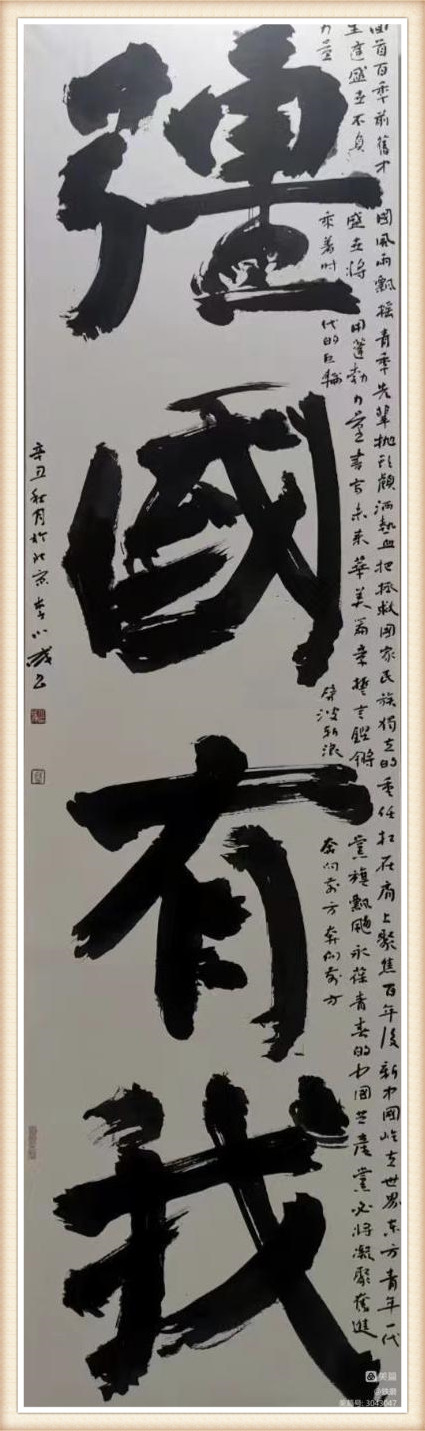 彊國有我
回首百年前舊中國風雨飄搖青年先輩拋頭顱洒熱血把拯救國家民族獨立的重任扛在肩上聚焦百年後新中國屹立世界東方青年一代
生逢盛世不負盛世將用蓬勃力量書寫未來華美篇章誓言鏗鏘黨旗飄颺永葆青春的中國共產黨必將凝聚奮進
力量乘着时代的巨輪劈波斬浪奔向前方奔向前方
辛丑秋月於北京李小成书
美篇
美篇号: 3043047